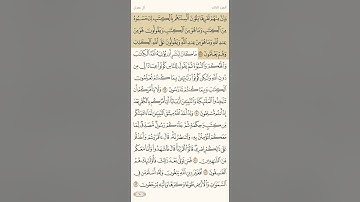 الجزء الثالث آل عمران
وَإِنَّ مِنْهُمْ لَفَرِيقًا يَلْوُۥنَ أَلْسِنَتَهُم بِٱلْكِتَٰبِ لِتَحْسَبُوهُ
مِنَ ٱلْكِتَٰبِ وَمَا هُوَ مِنَ ٱلْكِتَٰبِ وَيَقُولُونَ هُوَ مِنْ
عِندِ ٱللَّهِ وَمَا هُوَ مِنْ عِندِ ٱللَّهِ وَيَقُولُونَ عَلَى ٱللَّهِ ٱلْكَذِبَ
وَهُمْ يَعْلَمُونَ ٧٨ مَا كَانَ لِبَشَرٍ أَن يُؤْتِيَهُ ٱللَّهُ ٱلْكِتَٰبَ
وَٱلْحُكْمَ وَٱلنُّبُوَّةَ ثُمَّ يَقُولَ لِلنَّاسِ كُونُوا۟ عِبَادًا لِّى مِن
دُونِ ٱللَّهِ وَلَٰكِن كُونُوا۟ رَبَّٰنِيِّـۧنَ بِمَا كُنتُمْ تُعَلِّمُونَ
ٱلْكِتَٰبَ وَبِمَا كُنتُمْ تَدْرُسُونَ ٧٩ وَلَا يَأْمُرَكُمْ أَن
تَتَّخِذُوا۟ ٱلْمَلَٰٓئِكَةَ وَٱلنَّبِيِّـۧنَ أَرْبَابًا أَيَأْمُرُكُم بِٱلْكُفْرِ بَعْدَ
إِذْ أَنتُم مُّسْلِمُونَ ٨٠ وَإِذْ أَخَذَ ٱللَّهُ مِيثَٰقَ ٱلنَّبِيِّـۧنَ لَمَآ ءَاتَيْتُكُم
مِّن كِتَٰبٍ وَحِكْمَةٍ ثُمَّ جَآءَكُمْ رَسُولٌ مُّصَدِّقٌ لِّمَا
مَعَكُمْ لَتُؤْمِنُنَّ بِهِۦ وَلَتَنصُرُنَّهُۥ قَالَ ءَأَقْرَرْتُمْ وَأَخَذْتُمْ
عَلَىٰ ذَٰلِكُمْ إِصْرِى قَالُوٓا۟ أَقْرَرْنَا قَالَ فَٱشْهَدُوا۟ وَأَنَا۠ مَعَكُم
مِّنَ ٱلشَّٰهِدِينَ ٨١ فَمَن تَوَلَّىٰ بَعْدَ ذَٰلِكَ فَأُو۟لَٰٓئِكَ هُمُ
ٱلْفَٰسِقُونَ ٨٢ أَفَغَيْرَ دِينِ ٱللَّهِ يَبْغُونَ وَلَهُۥٓ أَسْلَمَ مَن فِى
ٱلسَّمَٰوَٰتِ وَٱلْأَرْضِ طَوْعًا وَكَرْهًا وَإِلَيْهِ يُرْجَعُونَ ٨٣